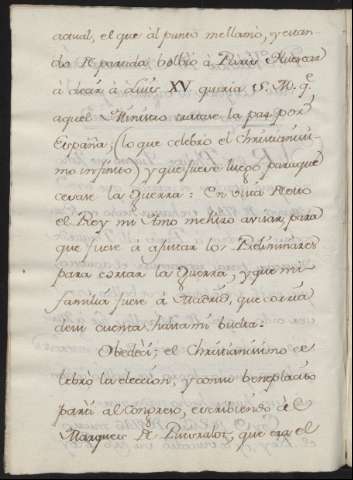 actual, el que al punto me llamó, y estan
do de partida bolbió à Paris Huescar
à decir à Luis XV queria S. M. q.e
aquel Ministro tratase la paz por
España; (lo que celebró el Christianissi
mo infinito) y que fuese luego para que
cesase la Guerra: En vista de esto
el Rey mi Amo me hizo avisar para
que fuese à ajustar los Preliminares
para cortar la Guerra, y que mi
familia fuese à Madrid, que corria
de mi cuenta hasta mi buelta.
Obedecí; el Christianissimo ce
lebró la eleccion, y como beneplacito
partí al Congreso, escribiendo à el
Marques de Puisralot, que era el